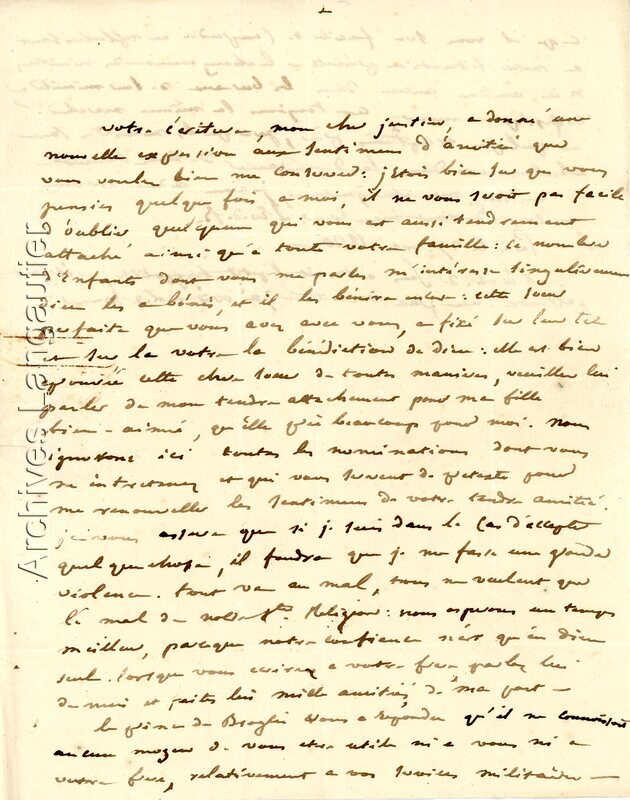 votre écriture, mon cher justin, a donné une
nouvelle expression aux sentimens d'amitié que
vous voulez bien me conserver: j'etois bien sur que vous
pensiez quelque fois a moi, il ne vous seroit pas facile
d'oublier quelqu'un qui vous est aussi tendrement
attaché ainsi qu'a toute votre famille: ce nombre
d'Enfants dont vous me parlez m'intéresse singulierement
dieu les a bénis, et il les bénira encore: cette soeur
parfaite que vous avez avec vous, a fixé sur leur tete
et sur la votre la bénédiction de dieu: elle est bien
eprouvée cette chere soeur de toutes manieres, veuillez lui
parler de mon tendre attachement pour ma fille
bien-aimée, qu'elle prie beaucoup pour moi. nous
ignorons ici toutes les nominations dont vous
m'entretenez et qui vous servent de pretexte pour
me renouveller les sentimens de votre tendre amitié.
je vous assure que si je suis dans le cas d'accepter
quelque chose, il faudra que je me fasse une grande
violence. tout va au mal, tous ne veulent que
le mal de notre Ste Religion: nous esperons un temps
meilleur, parceque notre confiance n'est qu'en dieu
seul. lorsque vous ecrirez a votre frere parlez lui
de moi et faites lui mille amitiés de ma part —
le prince de Broglie vous a repondu qu'il ne connoissoit
aucun moyen de vous etre utile ni a vous ni a
votre frere, relativement a vos services militaires —
Archives Lahgautier